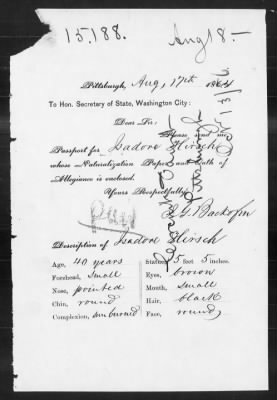 15.188.
Aug 18 -
Pittsburgh, Aug, 17th 1864
To Hon. Secretary of State, Washington City:
Dear Sir:
Please send me
Passport for Isadore Hirsch
whose Naturalization Papers and Oath of
Allegiance is enclosed.
Yours Respectfully,
Description of Isadore Hirsch
Age, 49 years Stature, 5 feet 5 inches.
Forehead, small Eyes, brown
Nose, pointed Mouth, small
Chin, round Hair, black
Complexion, sunburned Face, round